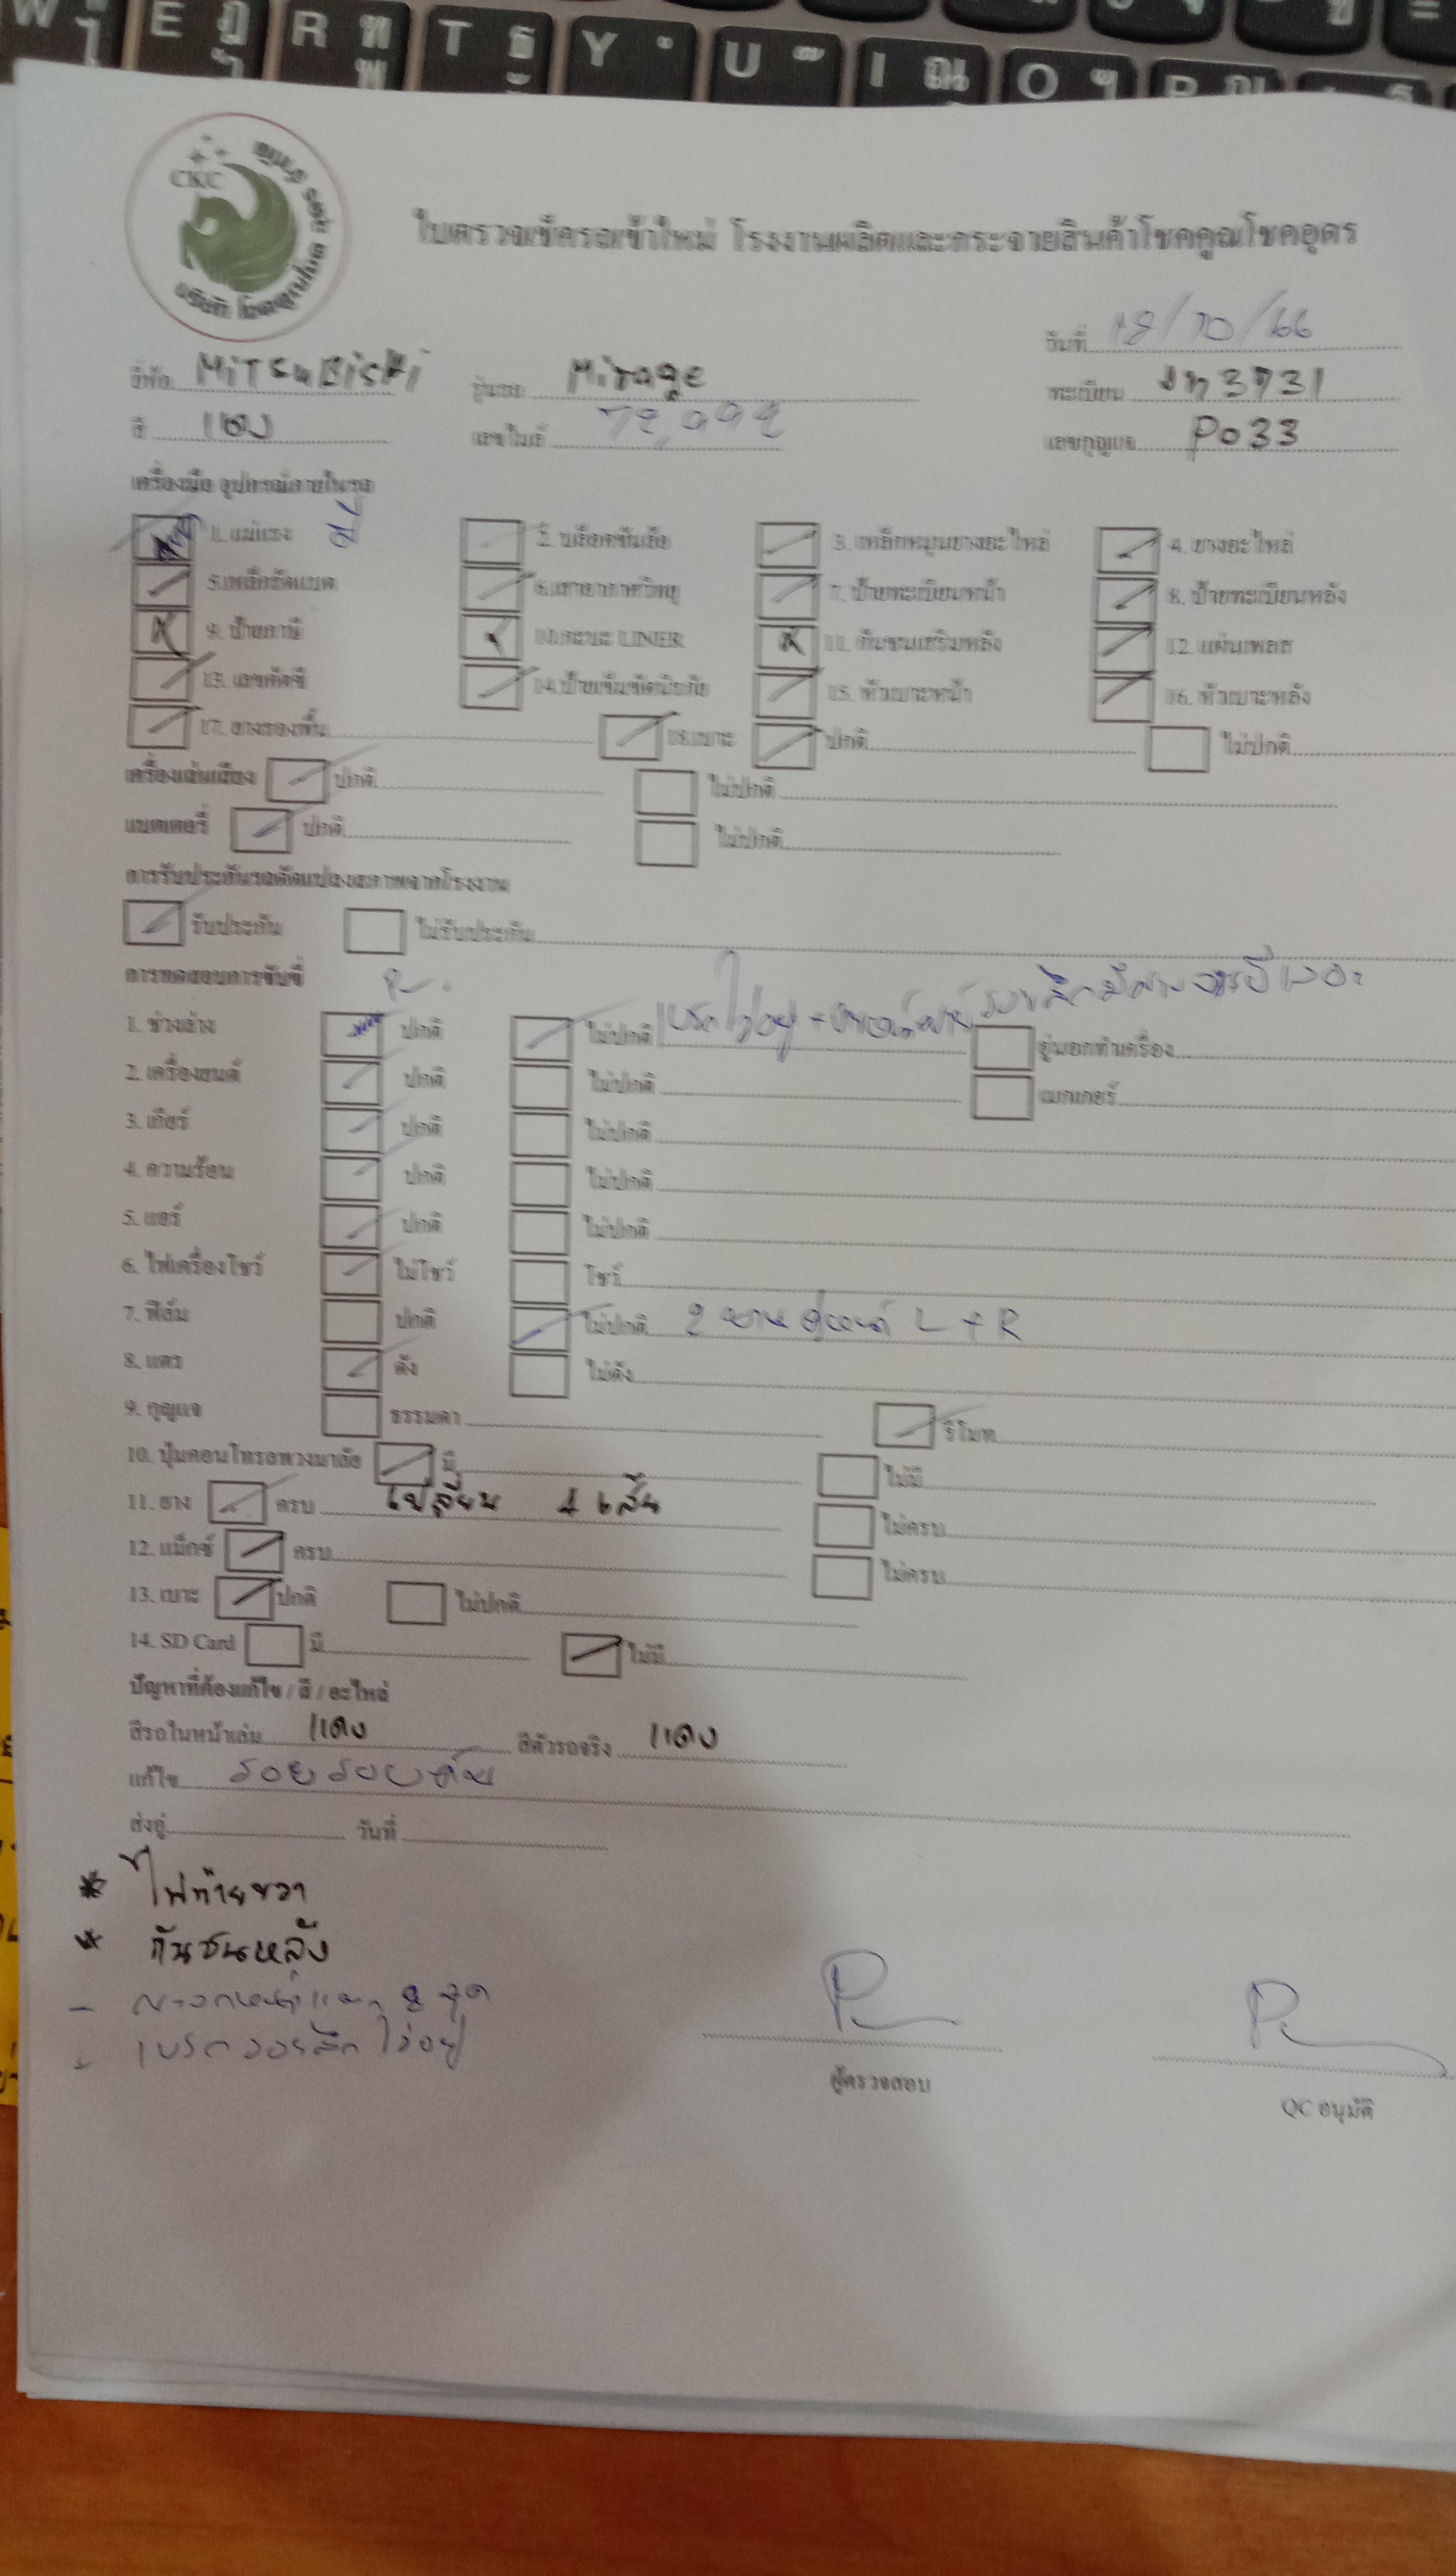 W E R T Y U I O P
CKC
ใบตรวจเช็ครถเข้าใหม่ โรงงานผลิตและกระจายสินค้าโชคคูณโชคอุดร
วันที่ 18/10/66
ยี่ห้อ MiTsuBisHi รุ่นรถ Mirage ทะเบียน 3731
สี แดง เลขไมล์ เลขกุญแจ P033
เครื่องมือ อุปกรณ์ภายในรถ
1. แม่แรง 2. บล็อคขันล้อ 3. เหล็กหมุนยางอะไหล่ 4. ยางอะไหล่
5.เหล็กรัดแบต 6.เสาอากาศวิทยุ 7. ป้ายทะเบียนหน้า 8. ป้ายทะเบียนหลัง
9. ป้ายภาษี 10.กะบะ LINER 11. กันชนเสริมหลัง 12. แผ่นเพลส
13. เลขคัตซี 14.ป้ายเข็มขัดนิรภัย 15. หัวเบาะหน้า 16. หัวเบาะหลัง
17. ยางรองพื้น 18.เบาะ ปกติ ไม่ปกติ
เครื่องเล่นเสียง ปกติ ไม่ปกติ
แบตเตอรี่ ปกติ ไม่ปกติ
การรับประกันรถดัดแปลงสภาพจากโรงงาน
รับประกัน ไม่รับประกัน
การทดสอบการขับขี่
1. ช่วงล่าง ปกติ ไม่ปกติ อู่นอกทำเครื่อง
2. เครื่องยนต์ ปกติ ไม่ปกติ แมกเกอร์
3. เกียร์ ปกติ ไม่ปกติ
4. ความร้อน ปกติ ไม่ปกติ
5. แอร์ ปกติ ไม่ปกติ
6. ไฟเครื่องโชว์ ไม่โชว์ โชว์
7. ฟิล์ม ปกติ ไม่ปกติ 2 บาน คู่หน้า L + R
8. แตร ดัง ไม่ดัง
9. กุญแจ ธรรมดา รีโมท
10. ปุ่มคอนโทรลพวงมาลัย มี ไม่มี
11. ยาง ครบ เปลี่ยน 4 เส้น ไม่ครบ
12. แม็กซ์ ครบ ไม่ครบ
13. เบาะ ปกติ ไม่ปกติ
14. SD Card มี ไม่มี
ปัญหาที่ต้องแก้ไข / สี / อะไหล่
สีรถในหน้าเล่ม แดง สีตัวรถจริง แดง
แก้ไข รอยรอบคัน
ส่งอู่ วันที่
* ไฟท้ายขวา
* กันชนหลัง
ผู้ตรวจสอบ
QC อนุมัติ